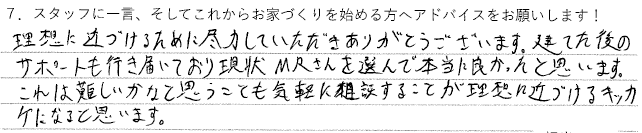 7. スタッフに一言、そしてこれからお家づくりを始める方へアドバイスをお願いします！
理想に近づけるために尽力していただきありがとうございます。建てた後の
サポートも行き届いており現状MRさんを選んで本当に良かったと思います。
これは難しいかなと思うことも気軽に相談することが理想に近づけるキッカ
ケになると思います。